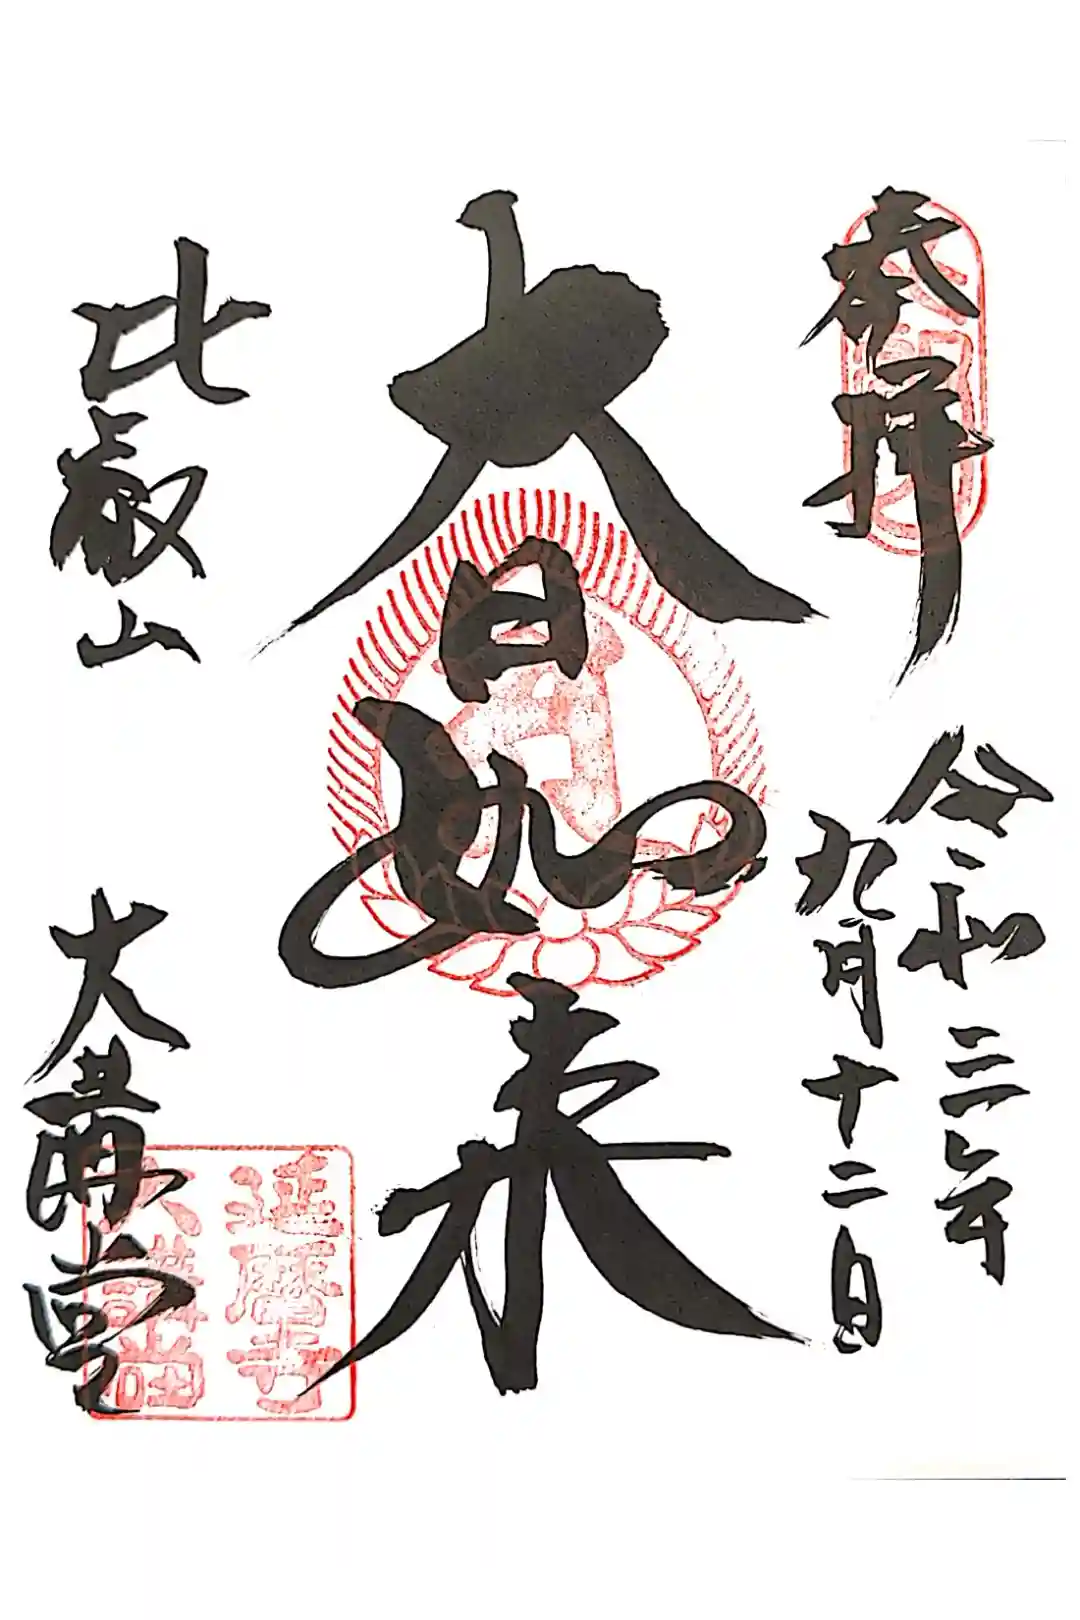 奉拝
令和三年
九月十二日
大日如来
比叡山
大講堂
延暦寺
大講堂